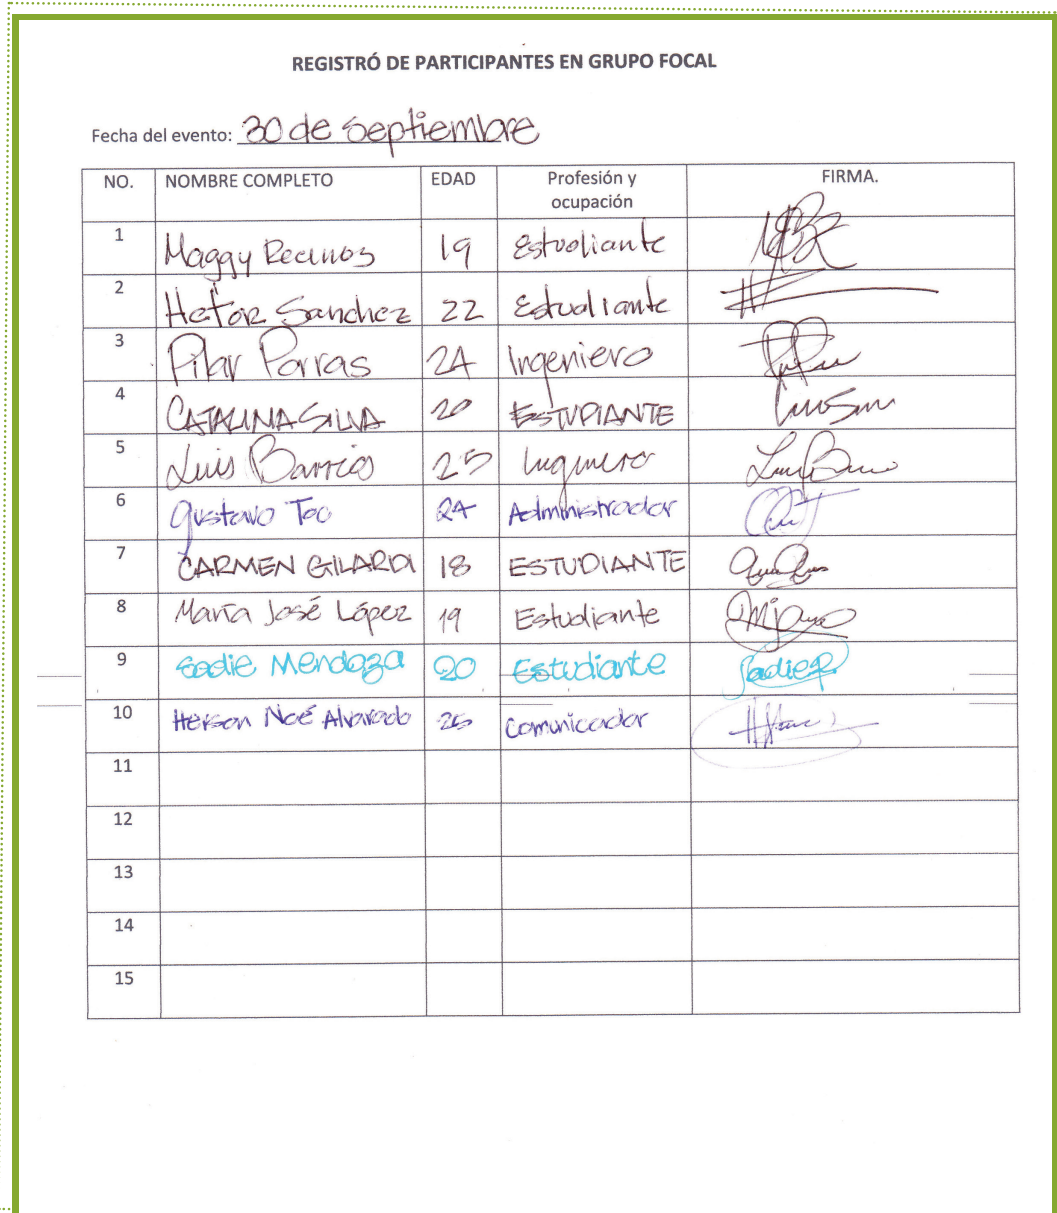 REGISTRÓ DE PARTICIPANTES EN GRUPO FOCAL
Fecha del evento: 30 de Septiembre
NO. NOMBRE COMPLETO EDAD Profesión y ocupación FIRMA.
1 Maggy Recinos 19 Estudiante
2 Hector Sanchez 22 Estudiante
3 Pilar Porras 24 Ingeniero
4 CATALINA SILVA 20 ESTUDIANTE
5 Luis Barrios 25 Ingeniero
6 Gustavo Toc 24 Administrador
7 CARMEN GILARDI 18 ESTUDIANTE
8 María José López 19 Estudiante
9 Sadie Mendoza 20 Estudiante
10 Herson Noé Alvarado 25 Comunicador
11
12
13
14
15